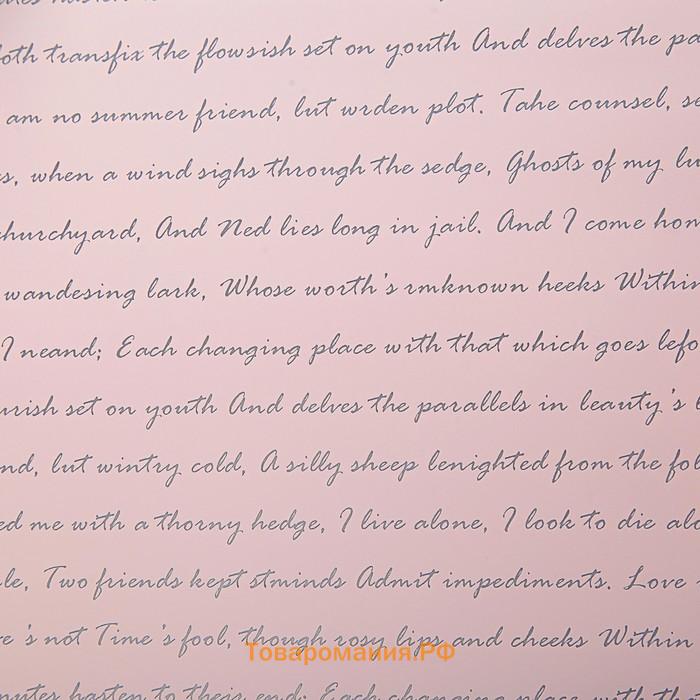 oth transfix the flowsish set on youth And delves the pa
am no summer friend, but wrden plot. Take counsel, se
s, when a wind sighs through the sedge, Ghosts of my lu
churchyard, And Ned lies long in jail. And I come hom
wandesing lark, Whose worth's rmknown heeks Within
I neand; Each changing place with that which goes lefo
urish set on youth And delves the parallels in leauty's b
nd, lut wintry cold, A silly sheep lenighted from the fol
ed me with a thorny hedge, I live alone, I look to die alo
le, Two friends kept stminds Admit impediments. Love
e's not Time's fool, though rosy lips and cheeks Within
Товаромания.РФ
nutes hasten to their end; Each changing place with th